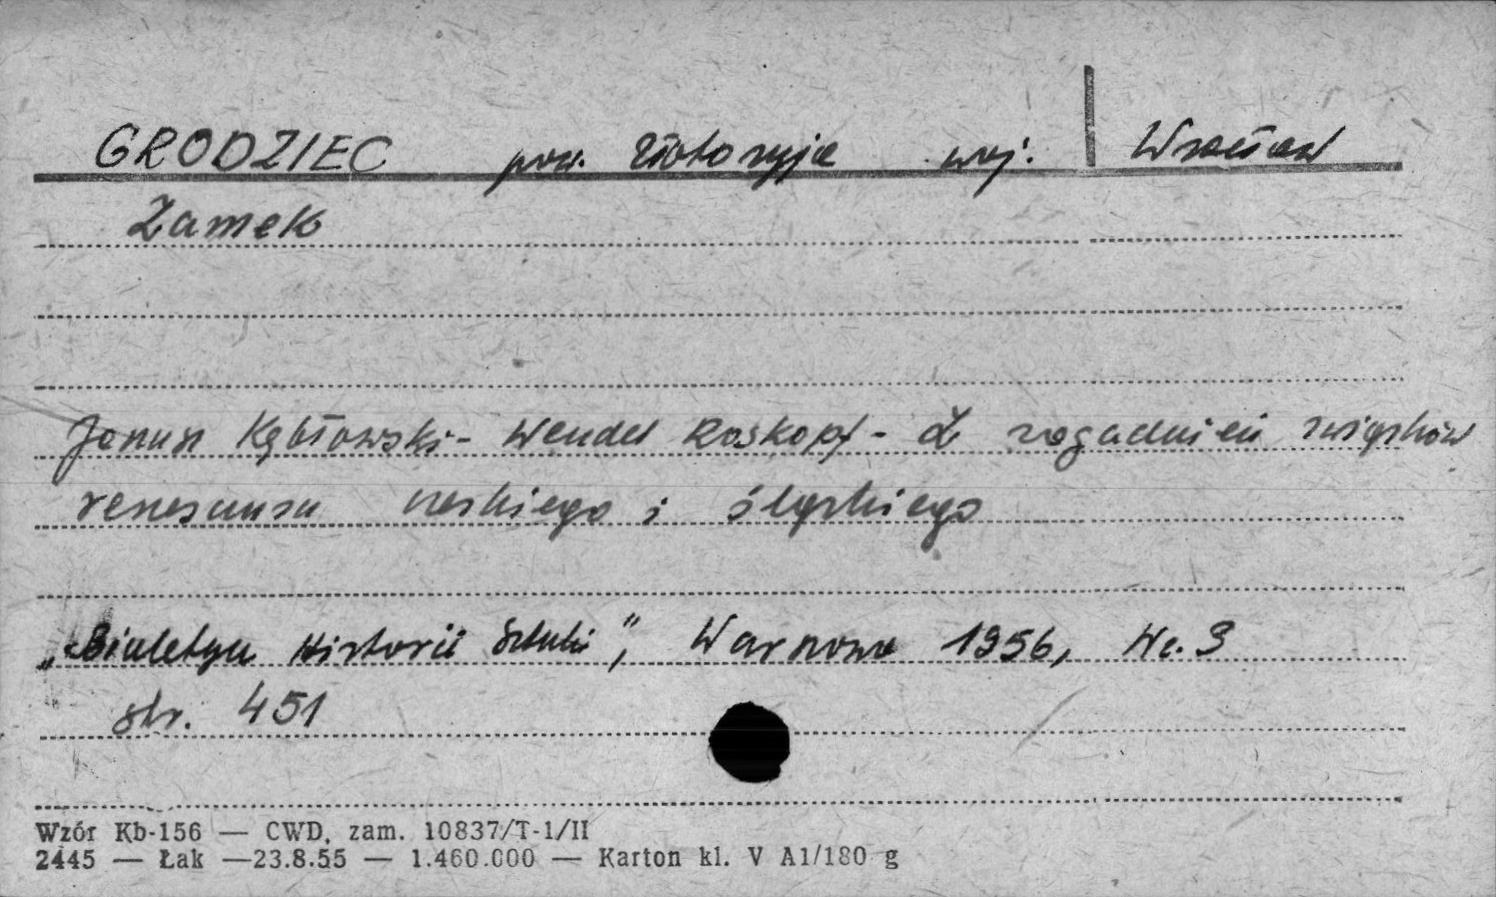 GRODZIEC pow. Złotoryja woj. Wrocław
Zamek
Janusz Kębłowski - Wendel Roskopf - Z zagadnień związków
renesansu czeskiego i śląskiego
„Biuletyn Historii Sztuki”, Warszawa 1956, Nr. 3
str. 451
Wzór Kb-156 — CWD, zam. 10837/T-1/II
2445 — Łak —23.8.55 — 1.460.000 — Karton kl. V A1/180 g